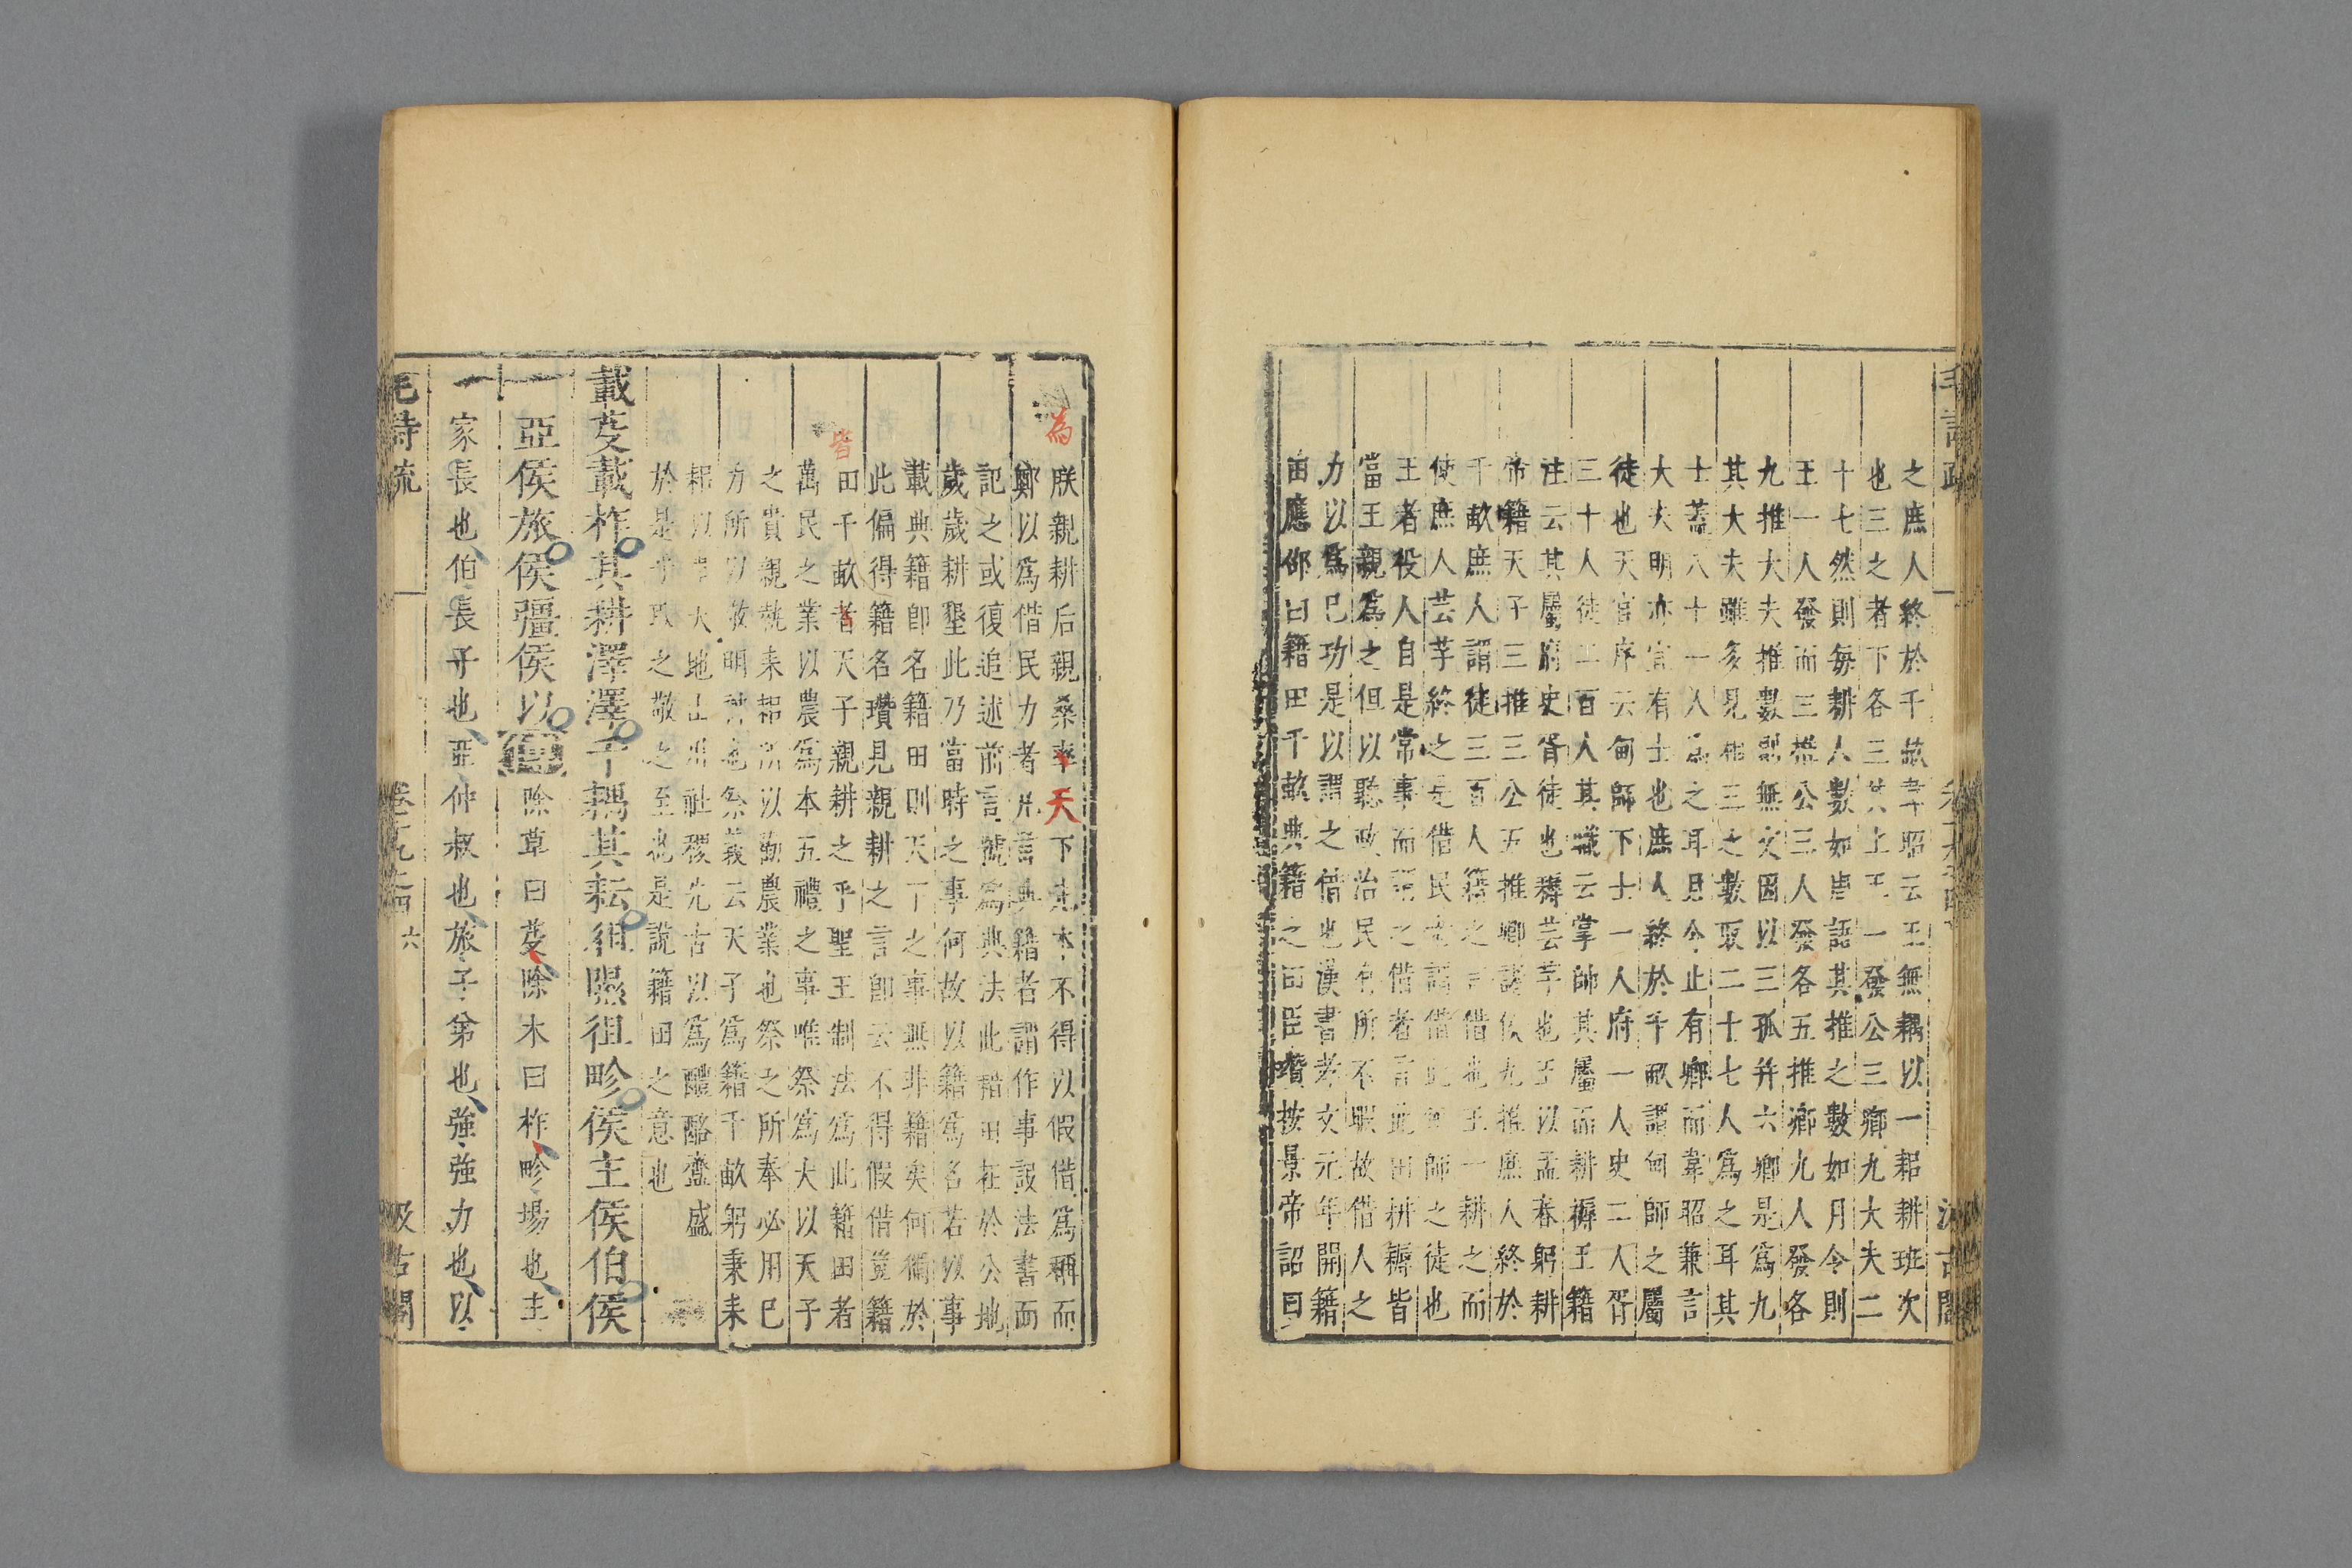 之庶人終於千畝韋昭云王無耦以一耜耕班次
也三之者下各三其上王一發公三卿九大夫二
十七然則每耕人數如唐語其推之數如月令則
王一人發而三推公三人發各五推卿九人發各
九推大夫推數則無文因以三孤并六卿是爲九
其大夫雖多見相三之數取二十七人爲之耳其
士蓋八十一人爲之耳且今止有卿而韋昭兼言
大夫明亦宜有士也庶人終於千畝謂甸師之屬
徒也天官序云甸師下士一人府一人史二人胥
三十人徒三百人其職云掌帥其屬而耕耨王籍
注云其屬府史胥徒也耨芸芓也王以孟春躬耕
帝籍天子三推三公五推卿諸侯九推庶人終於
千畝庶人謂徒三百人籍之言借也王一耕之而
使庶人芸芓終之是借民之謂借此甸師之徒也
王者役人自是常事而謂之借者言此田耕耨皆
當王親爲之但以聽政治民有所不暇故借人之
力以爲己功是以謂之借也漢書孝文元年開籍
田應卲曰籍田千畝典籍之田臣瓚按景帝詔曰
朕親耕后親桑率天下先本不得以假借爲稱而
鄭以爲借民力者凡言典籍者謂作事設法書而
記之或復追述前言號爲典法此籍田在於公地
歲歲耕墾此乃當時之事何故以籍爲名若以事
載典籍卽名籍田則天下之事無非籍矣何獨於
此偏得籍名瓚見親耕之言卽云不得假借豈籍
田千畝者天子親耕之乎聖王制法爲此籍田者
萬民之業以農爲本五禮之事唯祭爲大以天子
之貴親執耒耜所以勸農業也祭之所奉必用己
力所以敬明神也祭義云天子爲籍千畝躬秉耒
耜以事天地山川社稷先古以爲醴酪齍盛
於是乎取之敬之至也是説籍田之意也
載芟載柞其耕澤澤千耦其耘徂隰徂畛侯主侯伯侯
亞侯旅侯彊侯以傳除草曰芟除木曰柞畛場也主
家長也伯長子也亞仲叔也旅子弟也強強力也以
毛詩疏 卷十九之四 六 汲古閣